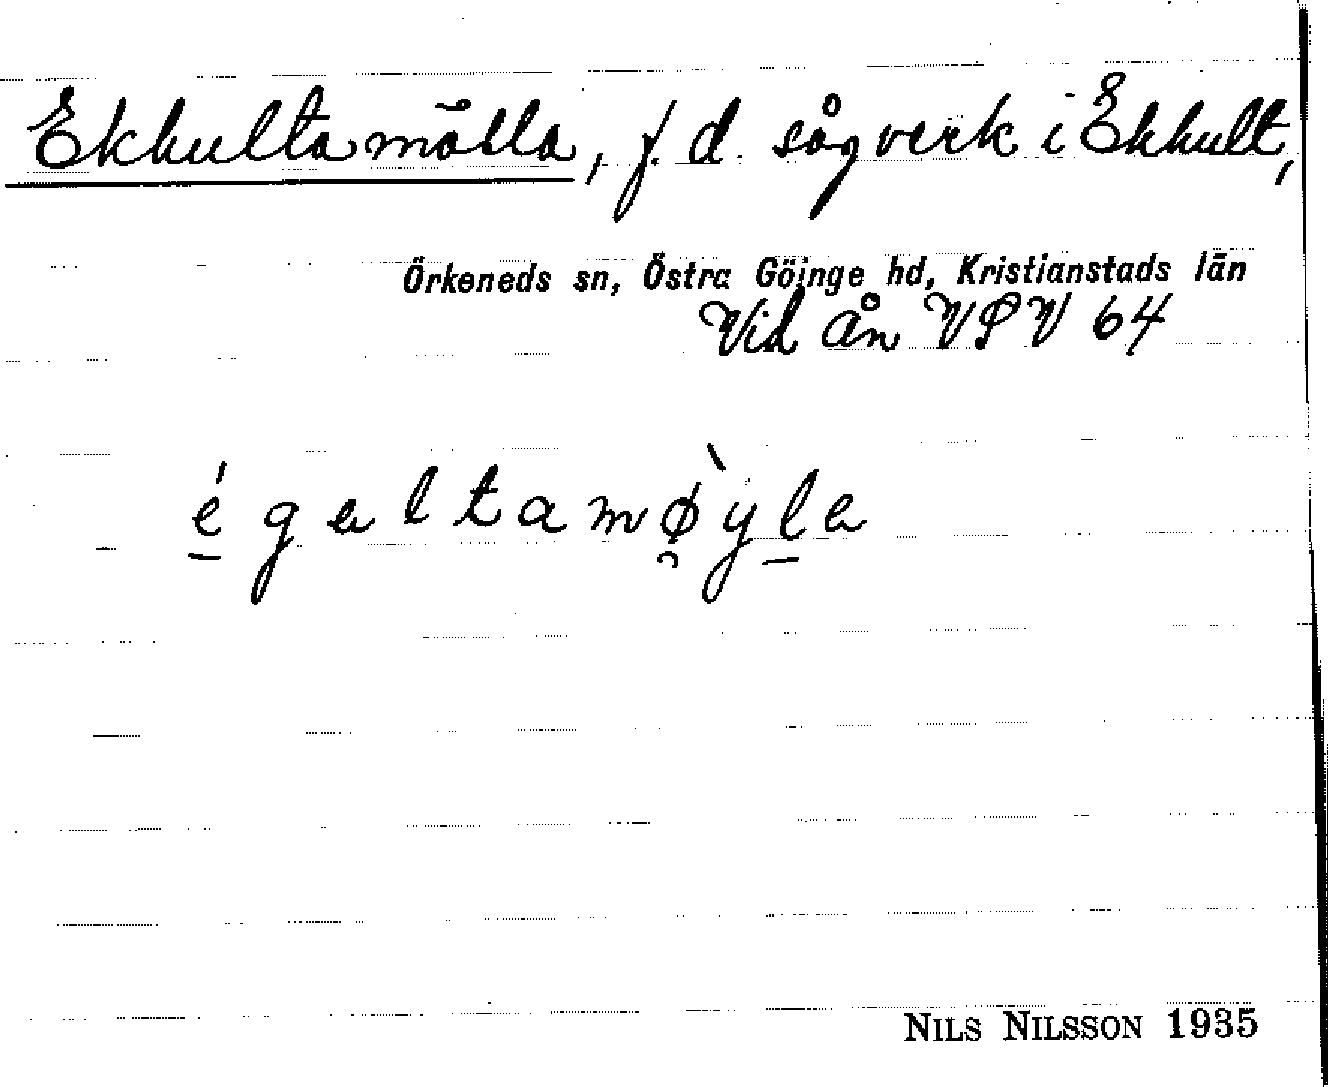 Ekhultamölla, f. d. sågverk i Ekhult,
Örkeneds sn, Östra Göinge hd, Kristianstads län
Vid ån VSV 64
égaltamø̀yla
NILS NILSSON 1935